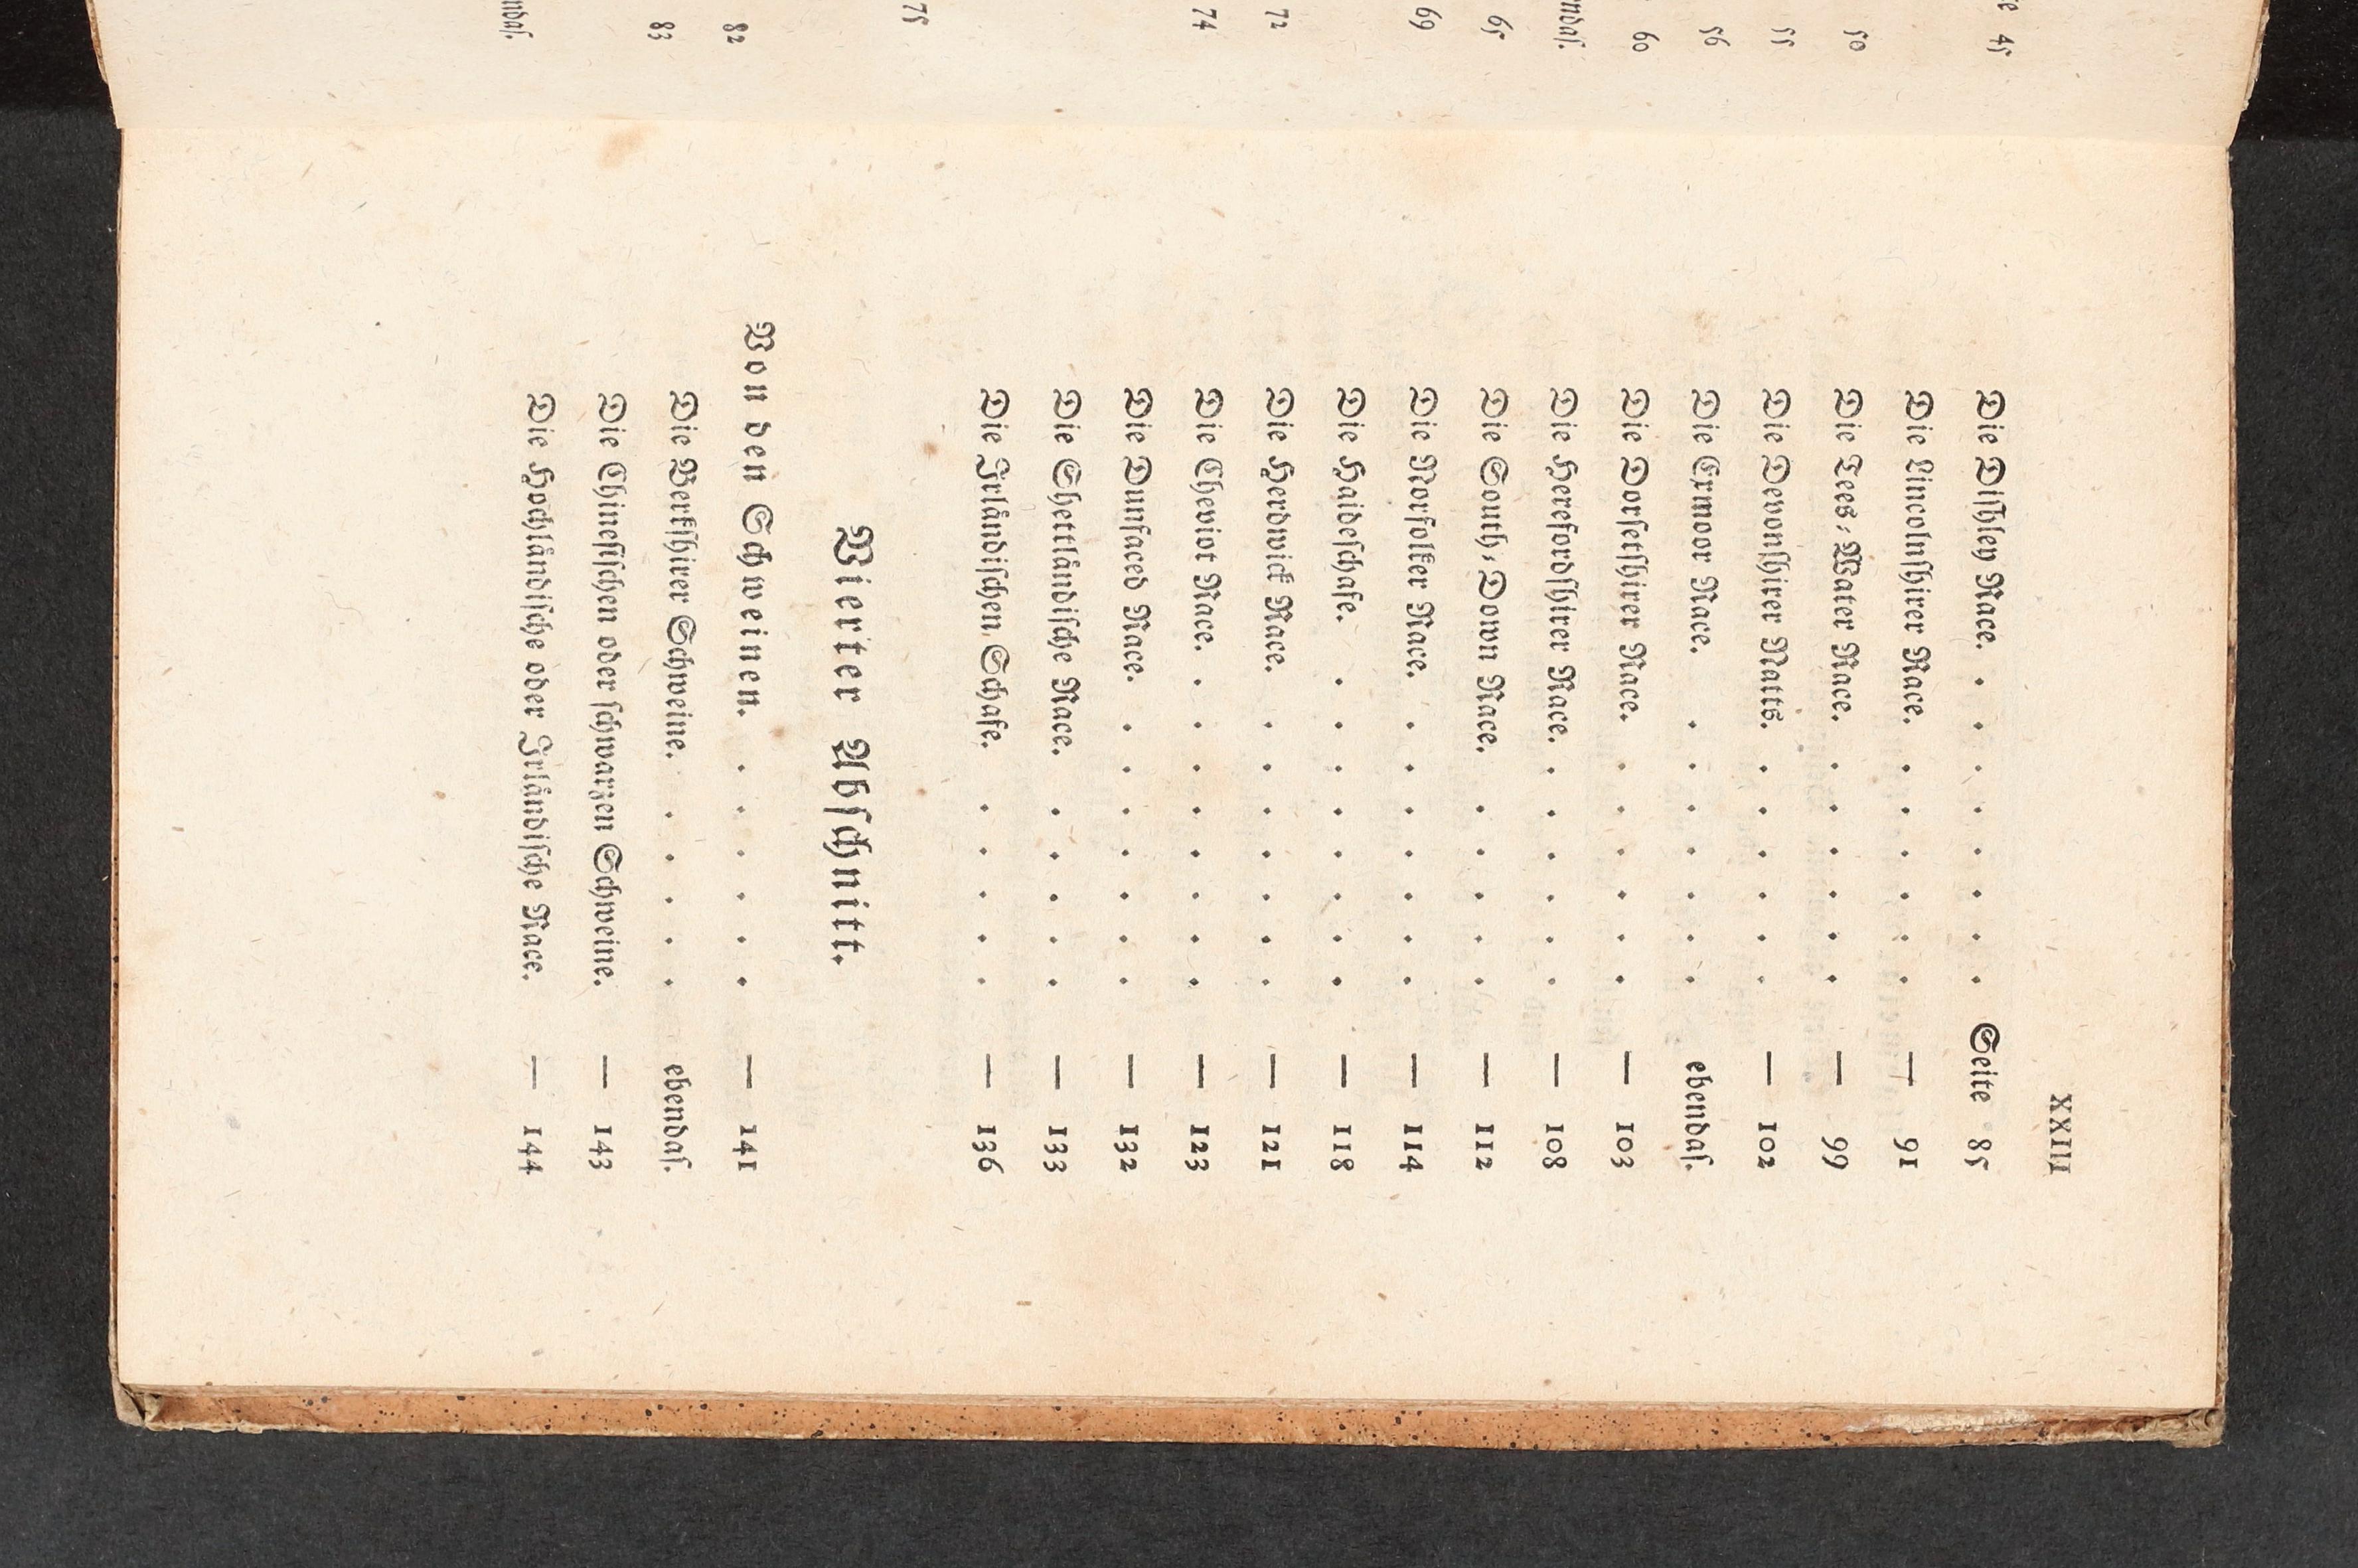 XXIII
Die Dishley Race. . . . . . . . Seite 85
Die Lincolnshirer Race. . . . . . . — 91
Die Tees-Water Race. . . . . . . — 99
Die Devonshirer Natts. . . . . . . — 102
Die Exmoor Race. . . . . . . . ebendas.
Die Dorsetshirer Race. . . . . . . — 103
Die Herefordshirer Race. . . . . . . — 108
Die South-Down Race. . . . . . — 112
Die Norfolker Race. . . . . . . . — 114
Die Haideschafe. . . . . . . . . — 118
Die Herdwick Race. . . . . . . . — 121
Die Cheviot Race. . . . . . . . . — 123
Die Dunfaced Race. . . . . . . . — 132
Die Shettländische Race. . . . . . — 133
Die Irländischen Schafe. . . . . . — 136
Vierter Abschnitt.
Von den Schweinen. . . . . . . — 141
Die Berkshirer Schweine. . . . . . ebendas.
Die Chinesischen oder schwarzen Schweine. — 143
Die Hochländische oder Irländische Race. — 144
45
50
55
56
60
65
69
72
74
75
82
83